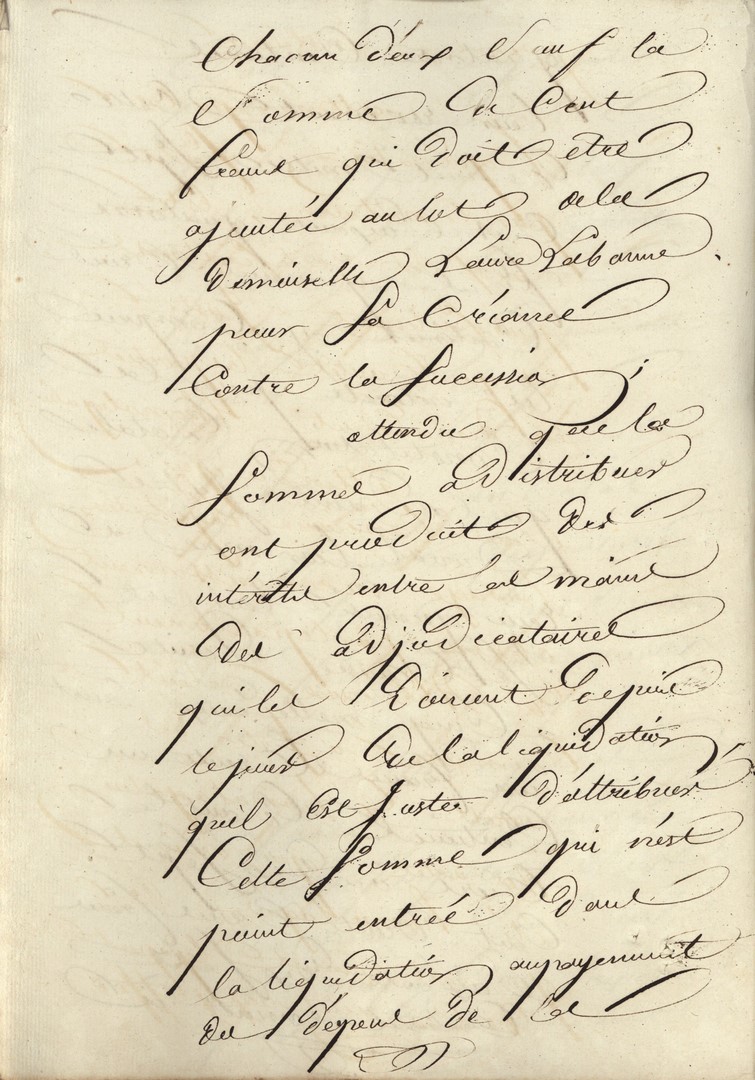 Chacun d'eux Sauf la
Somme de Cent
francs qui doit être
ajoutée au lot de la
demoiselle Laure Labonne
pour Sa Créance
Contre la Succession ;
attendu que les
Sommes a Distribuer
ont produit des
intérêts entre les mains
des adjudicataires
qui les doivent depuis
le jour de la liquidation,
qu'il est juste d'attribuer
Cette Somme qui n'est
point entrée dans
la liquidation, au payement
des dépens de la